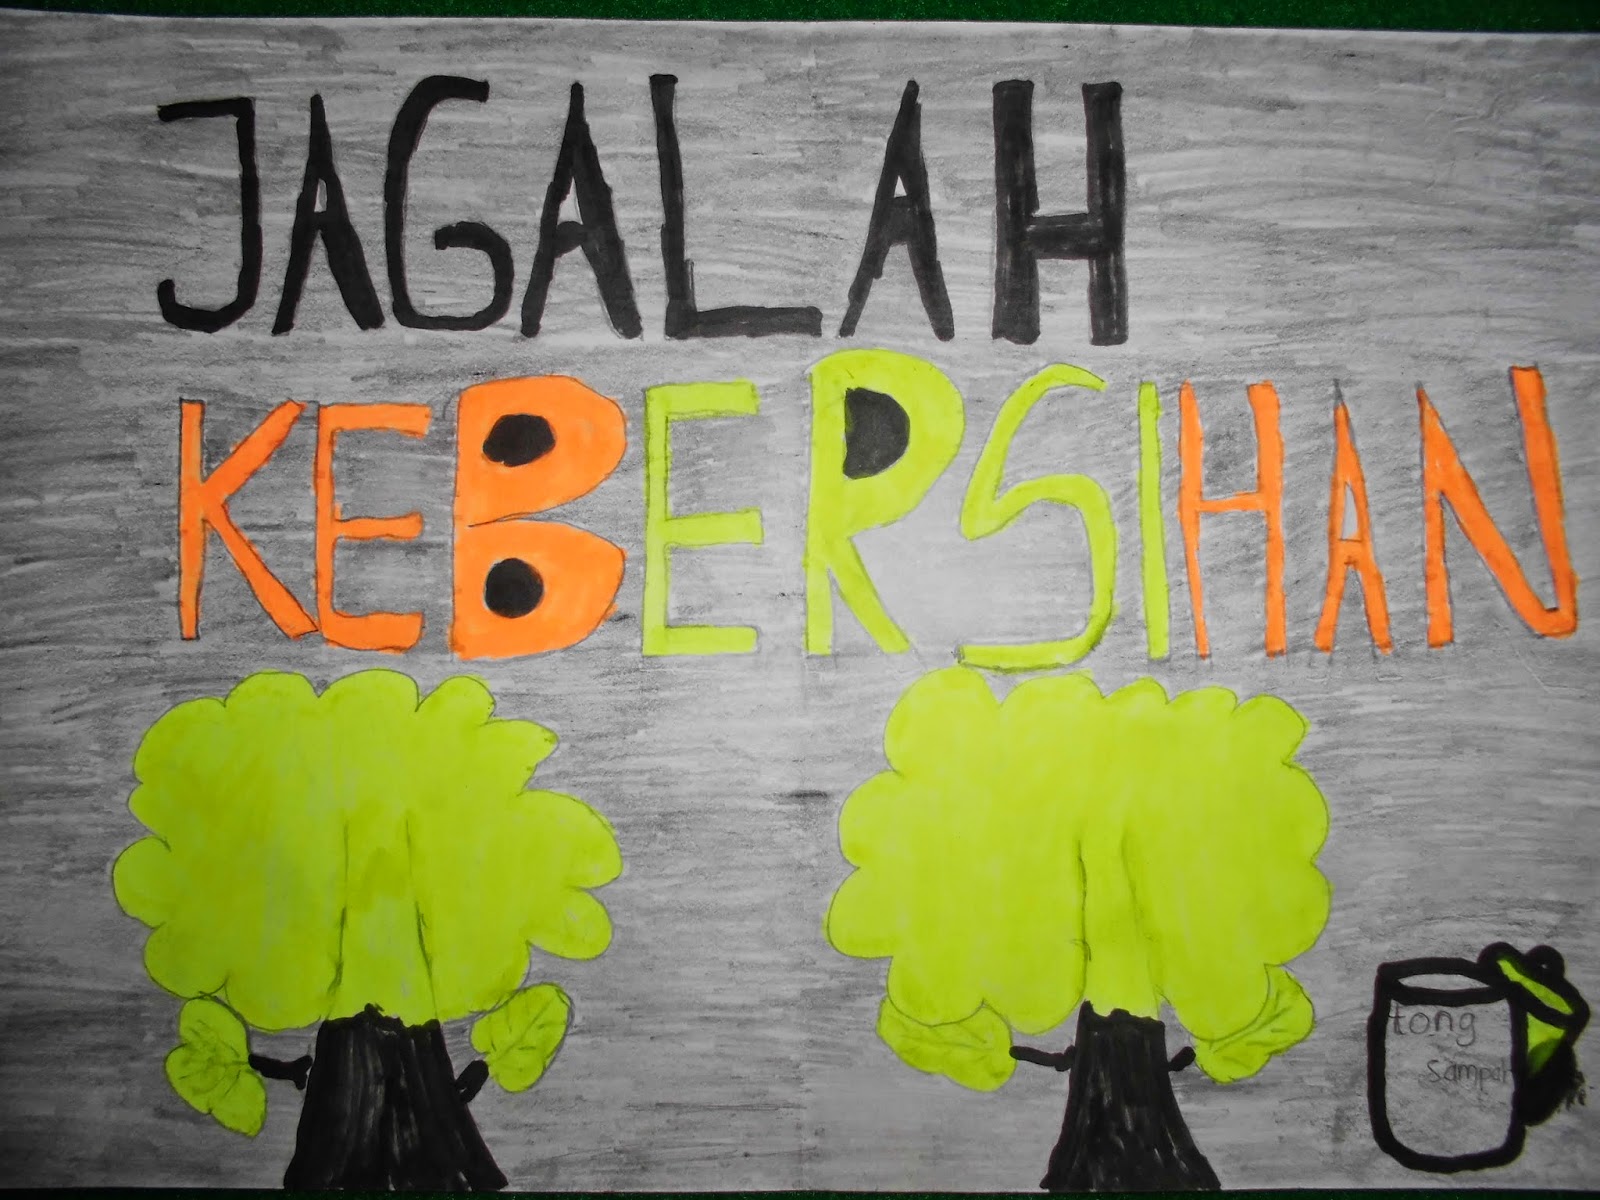 JAGALAH
KEBERSIHAN
tong
sampah